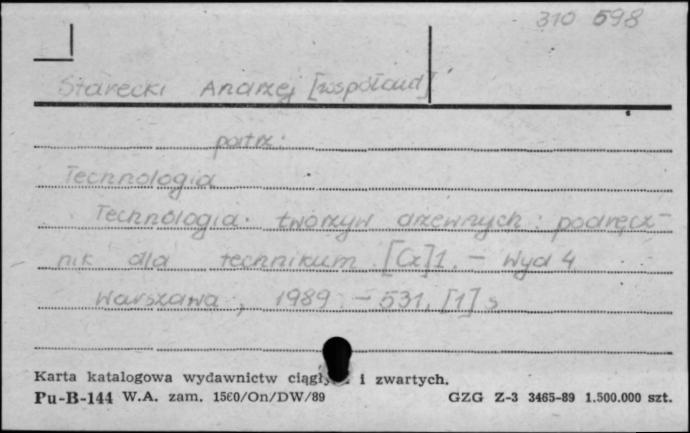 310 598
Starecki Andrzej [współaut]
patrz:
Technologia
Technologia tworzyw drzewnych : podręcz-
nik dla technikum. [Cz] 1. – Wyd 4
Warszawa, 1989. – 531, [1] s
Karta katalogowa wydawnictw i zwartych.
Pu-B-144 W.A. zam. 1560/On/DW/89 GZG Z-3 3465-89 1.500.000 szt.